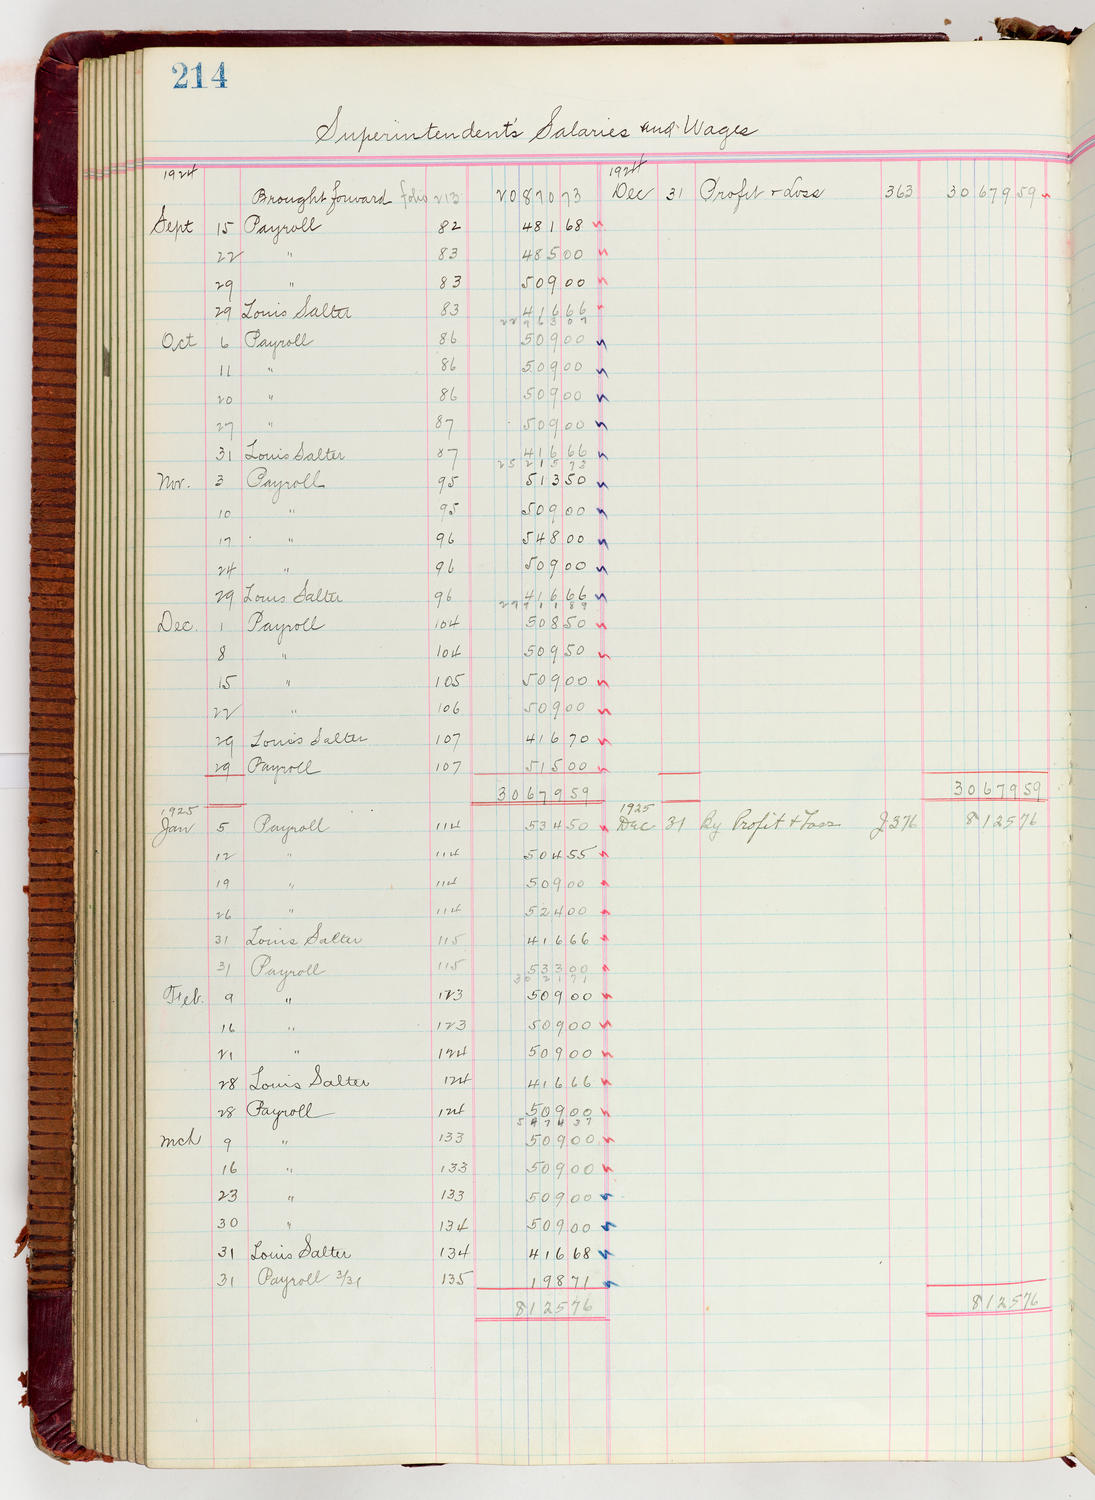 214
Superintendent's Salaries and Wages
1924 1924
Brought forward folio 213 2087073 Dec 31 Profit & Loss 363 3067959
Sept 15 Payroll 82 48168
22 " 83 48500
29 " 83 50900
29 Louis Salter 83 41666
2296307
Oct 6 Payroll 86 50900
11 " 86 50900
20 " 86 50900
27 " 87 50900
31 Louis Salter 87 41666
2521573
Nov. 3 Payroll 95 51350
10 " 95 50900
17 " 96 54800
24 " 96 50900
29 Louis Salter 96 41666
2771189
Dec. 1 Payroll 104 50850
8 " 104 50950
15 " 105 50900
22 " 106 50900
29 Louis Salter 107 41670
29 Payroll 107 51500
3067959 3067959
1925 1925
Jan 5 Payroll 114 53450 Dec 31 By Profit & Loss J376 812576
12 " 114 50455
19 " 114 50900
26 " 114 52400
31 Louis Salter 115 41666
31 Payroll 115 53300
302171
Feb. 9 " 123 50900
16 " 123 50900
21 " 124 50900
28 Louis Salter 124 41666
28 Payroll 124 50900
547437
Mch 9 " 133 50900
16 " 133 50900
23 " 133 50900
30 " 134 50900
31 Louis Salter 134 41668
31 Payroll 3/31 135 19871
812576 812576